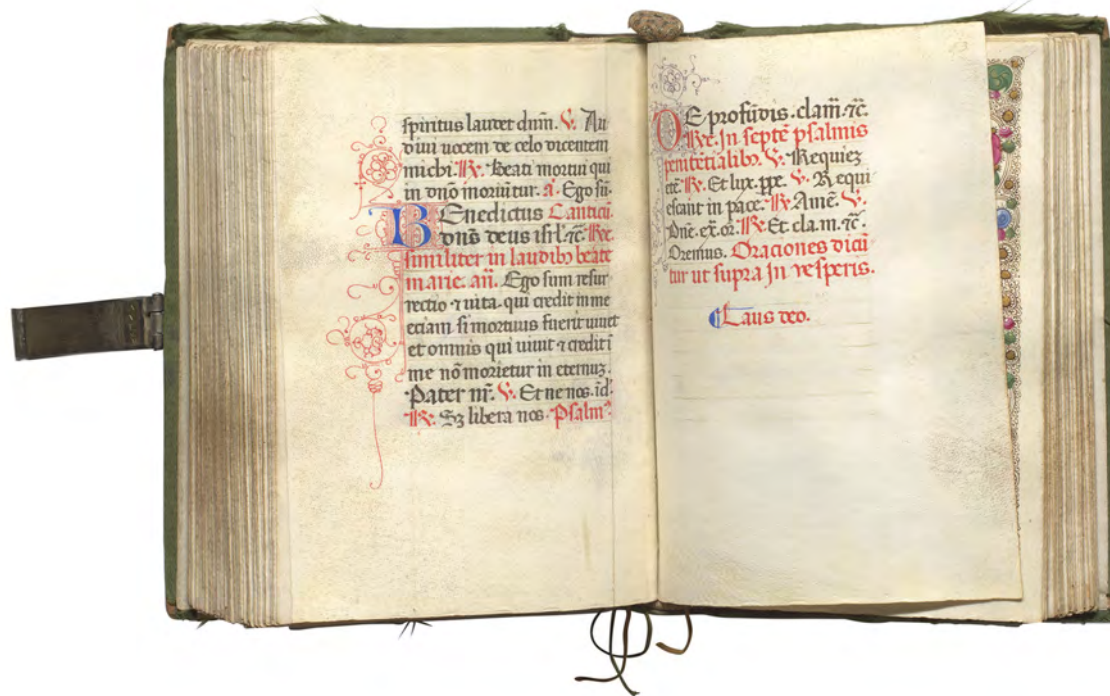 spiritus laudet dñm. V. Au
diui uocem de celo dicentem
michi. R. Beati mortui qui
in dño moriūtur. a. Ego sū.
BEnedictus Canticū.
dñs deus isrl. ⁊c. Re.
similiter in laudibꝫ beate
marie. añ. Ego sum resur
rectio ⁊ uita. qui credit in me
eciam si mortuus fuerit uiuet
et omnis qui uiuit ⁊ credit ī
me nō morietur in eternuꝫ.
Pater nr̄. V. Et ne nos. īd.
R. Sꝫ libera nos. Psalmꝰ
DE profūdis. clam̄. ⁊c̄.
Re. In septē psalmis
penitētialibꝫ. V. Requieꝫ
etē. R. Et lux. ppe. V. Requi
escant in pace. R. Amē. V.
Dñe. ex. or. R. Et cla. m. ⁊c̄.
Oremus. Oraciones dicū
tur ut supra In vesperis.
Laus deo.